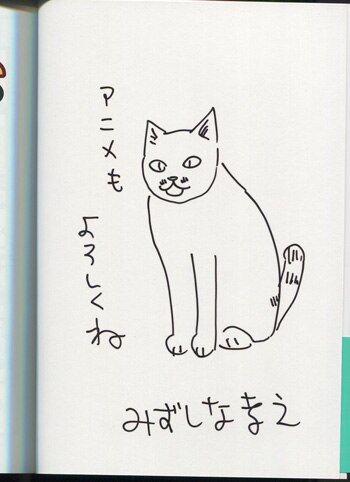 アニメも
よろしくね
みずしな孝之